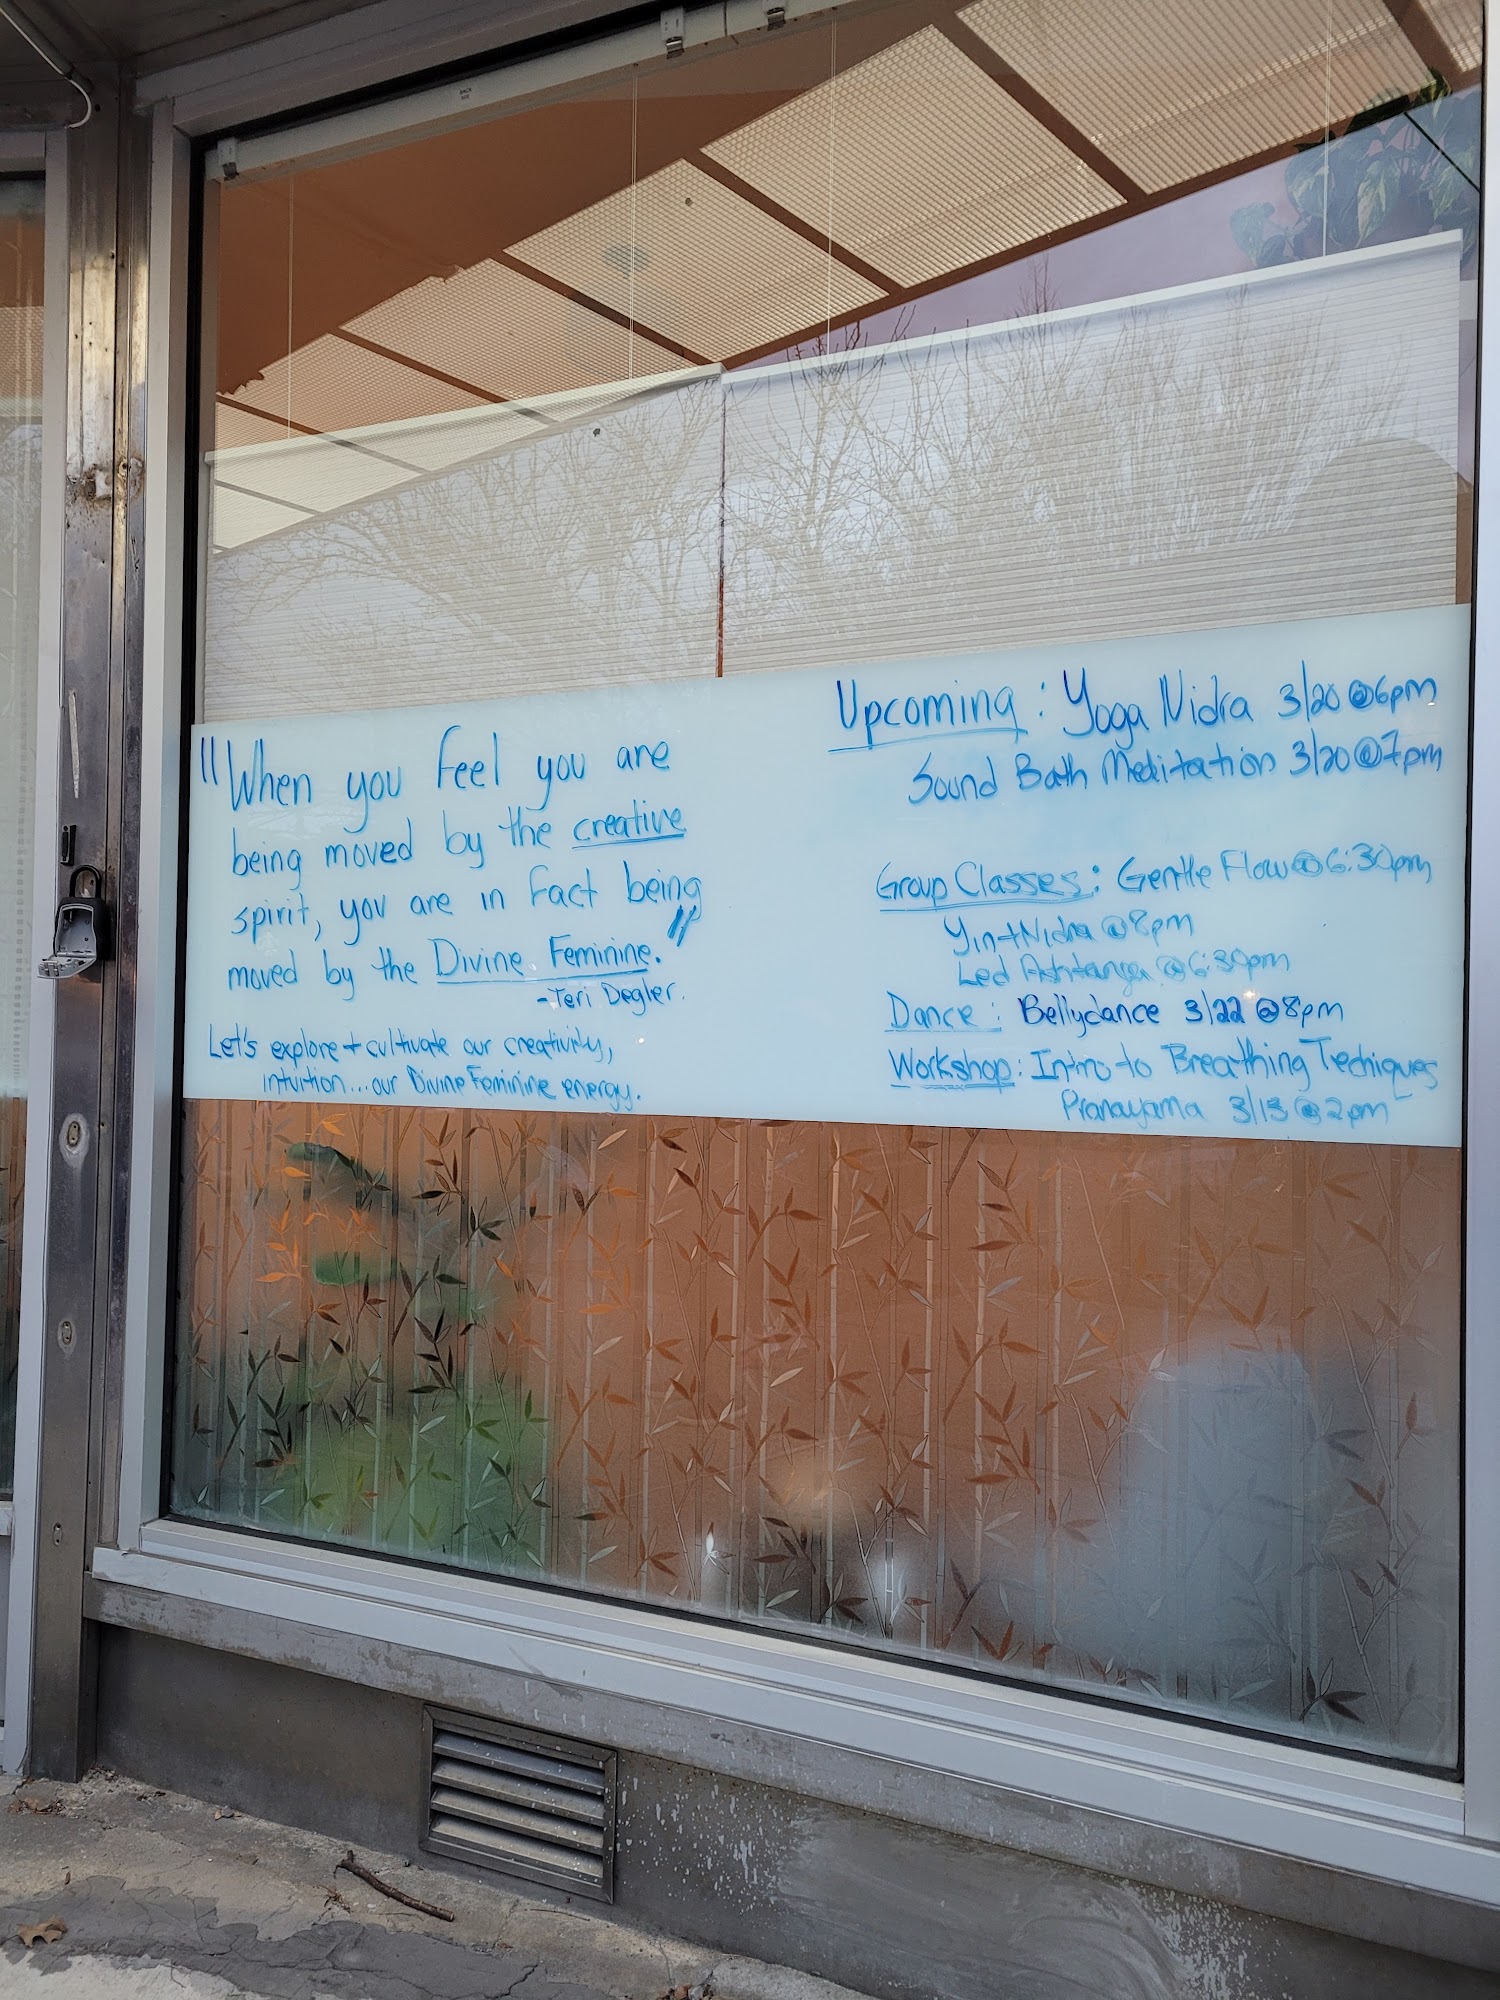 "When you feel you are
being moved by the creative
spirit, you are in fact being
moved by the Divine Feminine."
-Teri Degler.
Let's explore + cultivate our creativity,
intuition... our Divine Feminine energy.
Upcoming: Yoga Nidra 3/20 @6pm
Sound Bath Meditation 3/20 @7pm
Group Classes: Gentle Flow @ 6:30pm
Yin + Nidra @ 8pm
Led Ashtanga @ 6:30pm
Dance: Bellydance 3/22 @8pm
Workshop: Intro to Breathing Techiques
Pranayama 3/13 @ 2pm